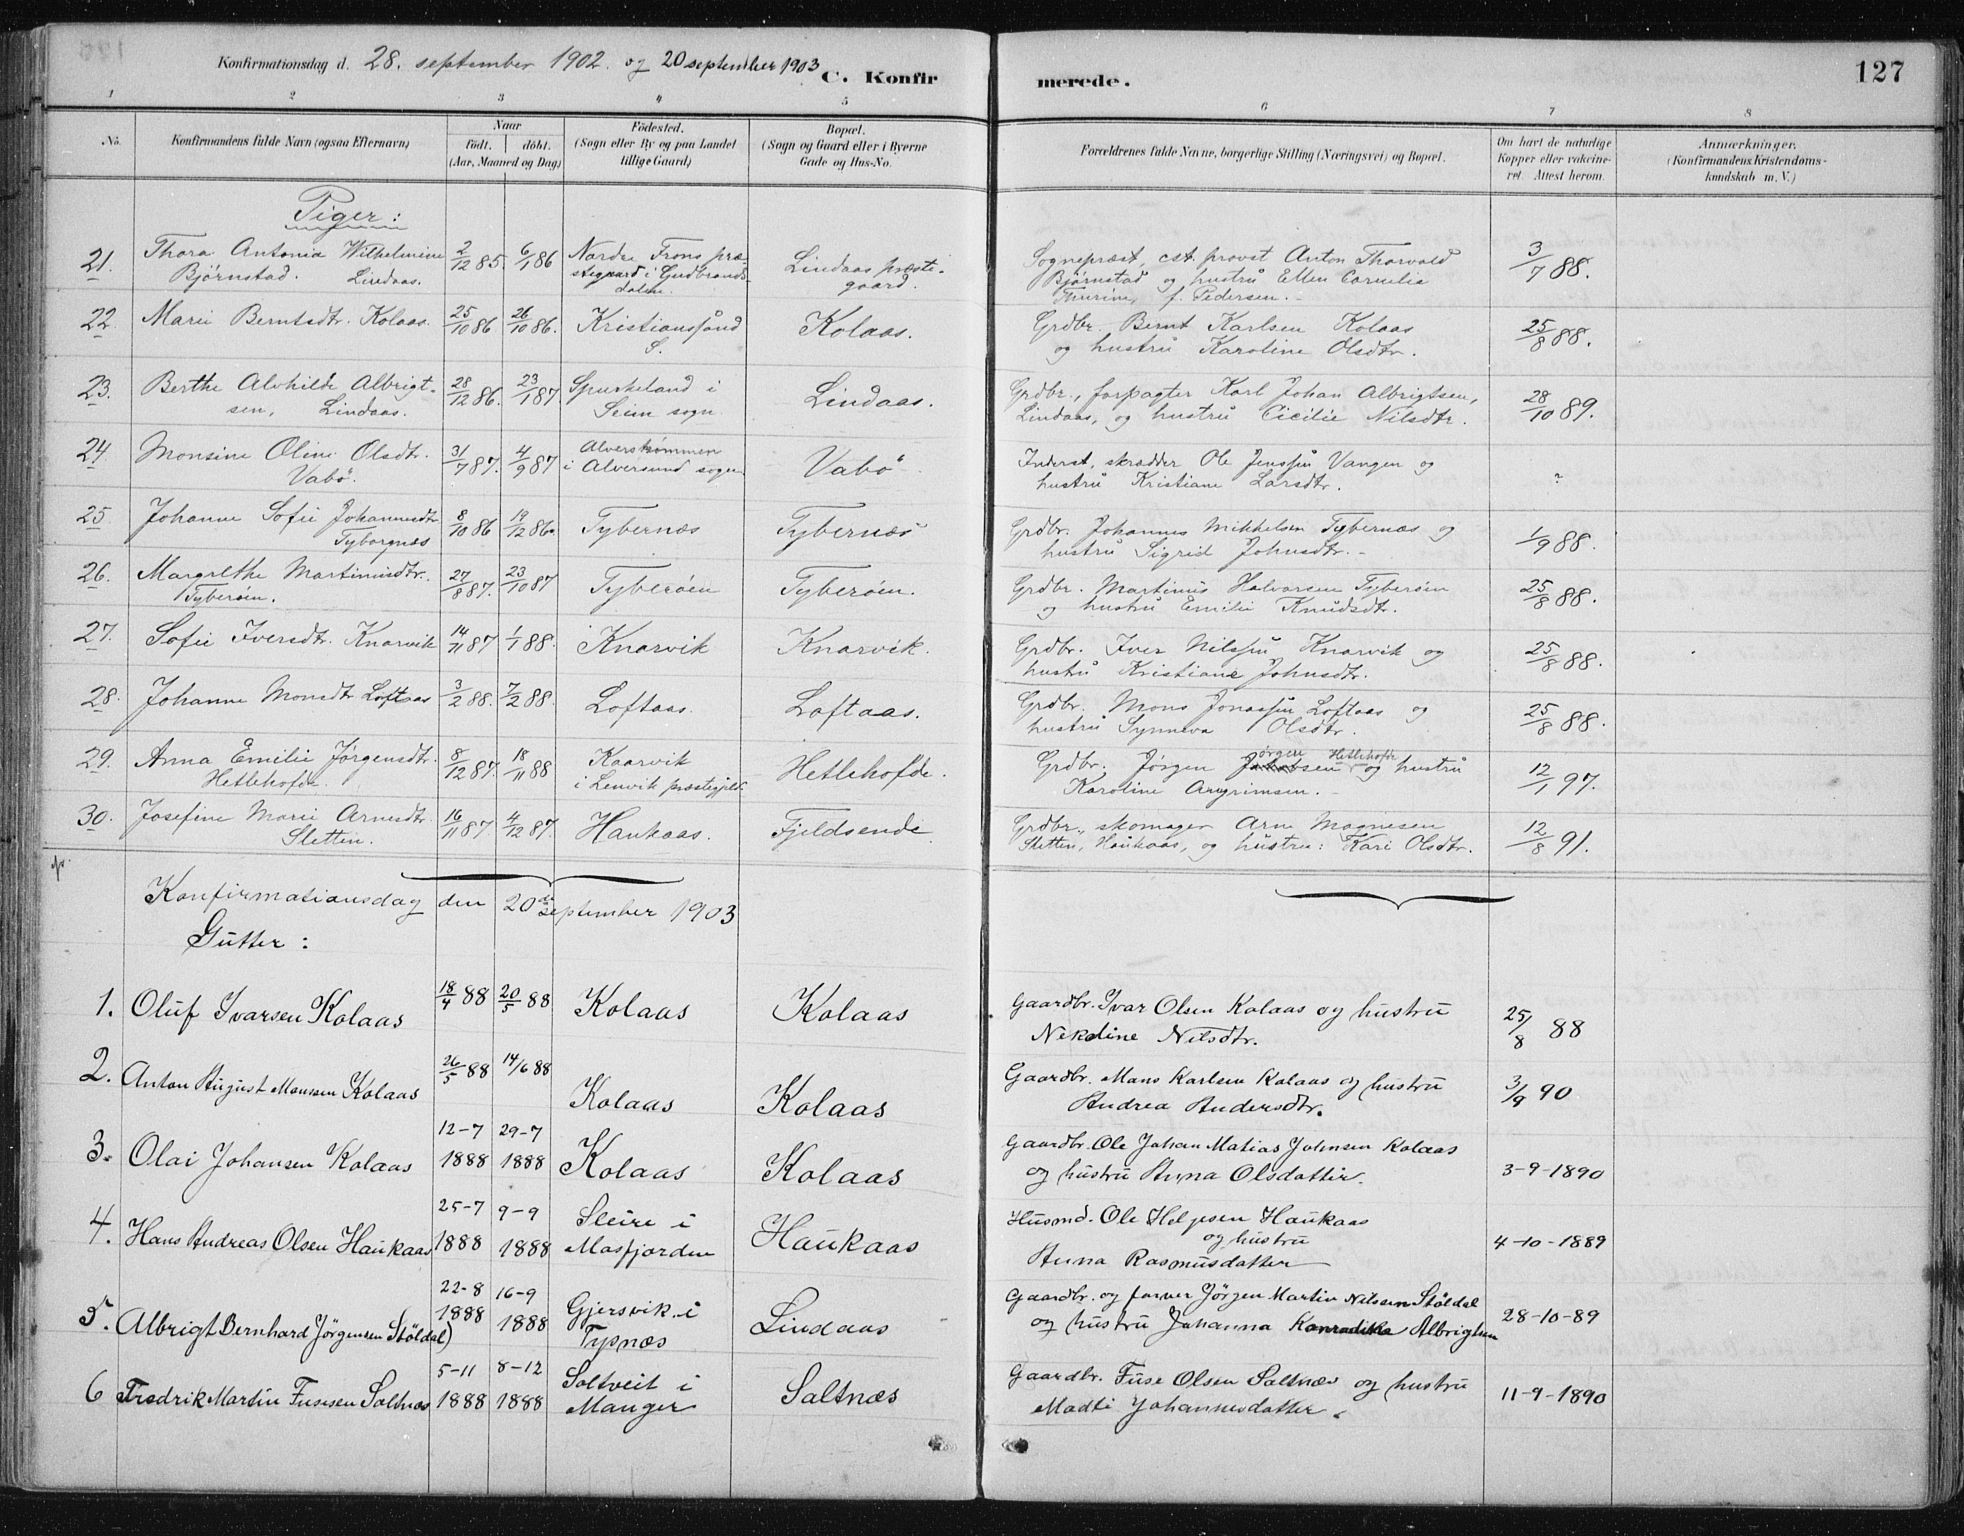 Konfirmationsdag d. 28. september 1902. og 20 september 1903
C. Konfir merede. 127
1 2 3 4 5 6 7 8
No. Konfirmandens fulde Navn (ogsaa Efternavn) Naar födt. döbt. (Aar, Maaned og Dag) Födested. (Sogn eller By og paa Landet tillige Gaard) Bopæl. (Sogn og Gaard eller i Byerne Gade og Hus-No. Forældrenes fulde Navne, borgerlige Stilling (Næringsvei) og Bopæl. Om havt de naturlige Kopper eller vakcineret. Attest herom. Anmærkninger. (Konfirmandens Kristendomskundskab m. V.)
Piger:
21. Thora Antonia Wilhelmine 2/12 85. 6/1 86 Nordre Frons præ- Lindaas præste- Sognepræst, cst. provst Anton Thorvald 3/7 88.
Bjørnstad. Lindaas. stegaard i Gudbrands- gaard. Bjørnstad og hustru Ellen Cornelia
dalen. Thurine, f. Pedersen.
22. Marie Berntsdtr. Kolaas. 25/10 86 26/10 86. Kristianssund Kolaas. Grdbr. Bernt Karlsen Kolaas 25/8 88.
S. og hustru Karoline Olsdtr.
23. Berthe Alvhilde Albrigt- 28/12 86. 23/1 87 Spurkeland i Lindaas. Grdbr., forpagter Karl Johan Albrigtsen, 28/10 89.
sen, Lindaas. Seim sogn Lindaas, og hustru Cicilie Nilsdtr.
24. Monsine Oline Olsdtr. 31/7 87. 4/9 87 Alverstrømmen Vabö Inderst, skrædder Ole Jenssen Vangen og ?
Vabö. i Alversund sogn hustru Kristiane Larsdtr.
25. Johanne Sofie Johannesdtr 8/10 86 19/12 86. Tybernæs Tybernæs Grdbr. Johannes Mikkelsen Tybernæs og 1/9 88.
Tyborgnæs hustru Sigrid Johnsdtr. -
26. Margrethe Martinusdtr. 27/8 87. 23/10 87 Tyberøen Tyberøen. Grdbr. Martinus Halvorsen Tyberøen 25/8 88.
Tyberøen. og hustru Emilie Knudsdtr.
27. Sofie Iversdtr. Knarvik 14/11 87 1/1 88. Knarvik Knarvik. Grdbr. Iver Nilssen Knarvik og 25/8 88.
hustru Kristiane Johnsdtr.
28. Johanne Monsdtr Loftaas 3/2 88. 7/2 88. Loftaas. Loftaas. Grdbr. Mons Jonassen Loftaas og 25/8 88.
hustru Synneva Olsdtr.
29. Anna Emilie Jørgensdtr. 8/12 87. 18/11 88 Kaarvik Hetlehofde. Grdbr. Jørgen Jørgen Hetlehofde og hustru 12/1 97.
Hetlehofde. i Lenvik præstegjeld. Karoline Angrimsen. -
30. Josefine Marie Arnesdtr. 16/11 87. 4/12 87. Haukaas. Fjeldsende Grdbr., skomager Arn Magnesen 12/8 91.
Sletten. Sletten, Haukaas, og hustru: Kari Olsdtr.
Konfirmationsdag den 20de september 1903
Gutter:
1. Oluf Ivarsen Kolaas 18/4 88 20/5 88 Kolaas Kolaas Gaardbr. Ivar Olsen Kolaas og hustru 25/8 88
Nekoline Nilsdtr.
2. Anton August Monsen Kolaas 26/5 88 14/6 88 Kolaas Kolaas Gaardbr. Mons Karlsen Kolaas og hustru 3/9 90
Andrea Andersdtr.
3. Olai Johansen Kolaas 12-7 1888 29-7 1888 Kolaas Kolaas Gaardbr. Ole Johan Matias Johnsen Kolaas 3-9-1890
og hustru Anna Olsdatter.
4. Hans Andreas Olsen Haukaas 25-7 1888 9-9 1888 Sleire i Haukaas Husmd. Ole Helgesen Haukaas 4-10-1889
Masfjorden og hustru
Anna Rasmusdatter
5. Albrigt Bernhard Jørgensen Stöldal) 22-8 1888 16-9 1888 Gjersvik i Lindaas Gaardbr. og farver Jørgen Martin Nilsen Stöldal 28-10-89
Tysnæs og hustru Johanna Konradika Albrigtsen
6 Fredrik Martin Fusesen Saltnæs 5-11 1888 8-12 1888 Soltveit i Saltnæs Gaardbr. Fuse Olsen Saltnæs og hustru 11-9-1890
Manger Madti Johannesdatter.